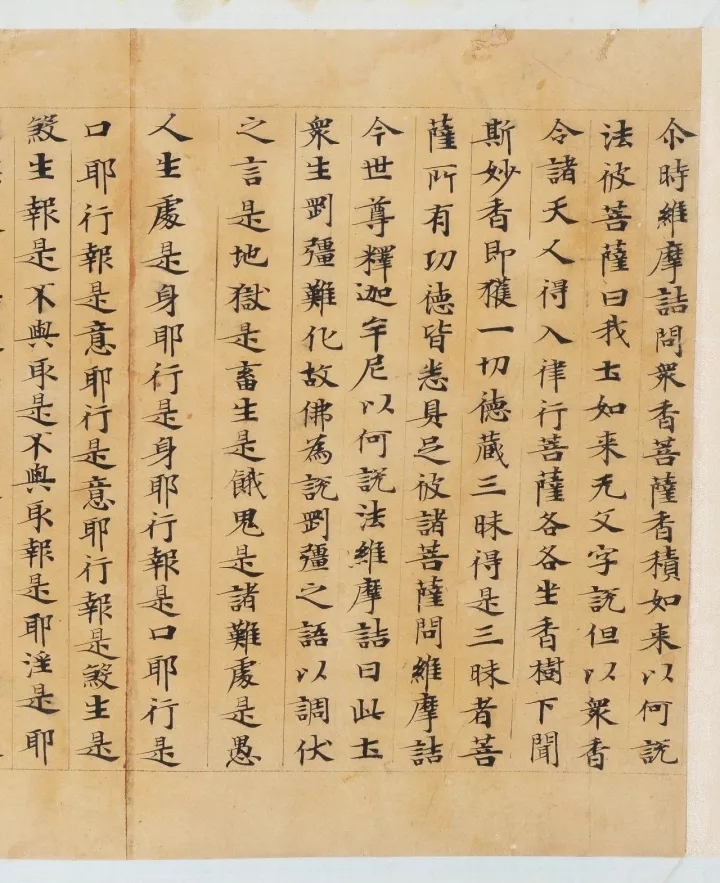 尒時維摩詰問衆香菩薩香積如来以何説
法彼菩薩曰我土如来无文字説但以衆香
令諸天人得入律行菩薩各各坐香樹下聞
斯妙香即獲一切徳蔵三昧得是三昧者菩
薩所有功徳皆悉具足彼諸菩薩問維摩詰
今世尊釋迦牟尼以何説法維摩詰曰此土
衆生剛彊難化故佛為説剛彊之語以調伏
之言是地獄是畜生是餓鬼是諸難處是愚
人生處是身耶行是身耶行報是口耶行是
口耶行報是意耶行是意耶行報是煞生是
煞生報是不與取是不與取報是耶淫是耶